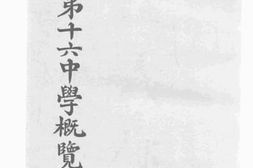 第十六中學概覽